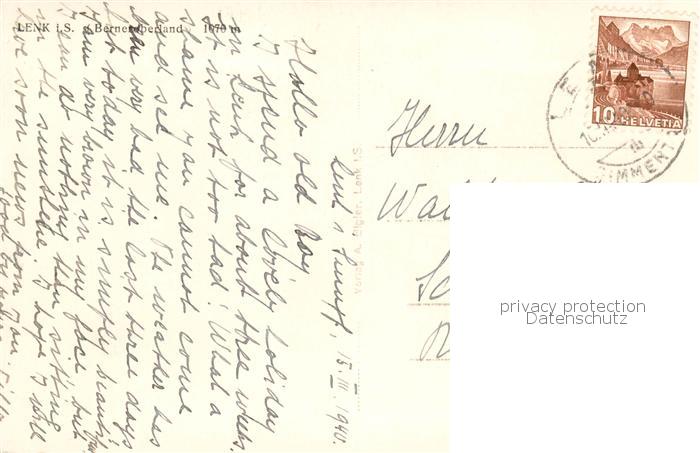 LENK i.S. Berner Oberland 1070 m
Lenk i. Simmt., 15. III. 1940.
Hallo old Boy
I spend a lovely holiday
in Lenk for about three weeks.
It is not too bad! What a
shame you cannot come
and see me. The weather has
been very bad the last three days
but today it is simply beautiful
I am very brown in my face, but
I am at nothing than sitting
in the sunshine. I hope I will
have soon news from you.
Good
Verlag A. Bigler, Lenk i.S.
Herrn
10 HELVETIA
SIMMENT
privacy protection
Datenschutz